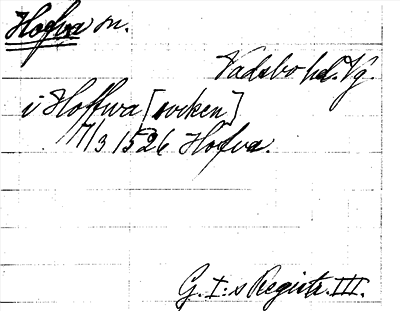 Hofva sn.
Vadsbo hd. Vg.
i Hoffwa [socken]
17/3 1526 Hofva.
G. I:s Registr. III.